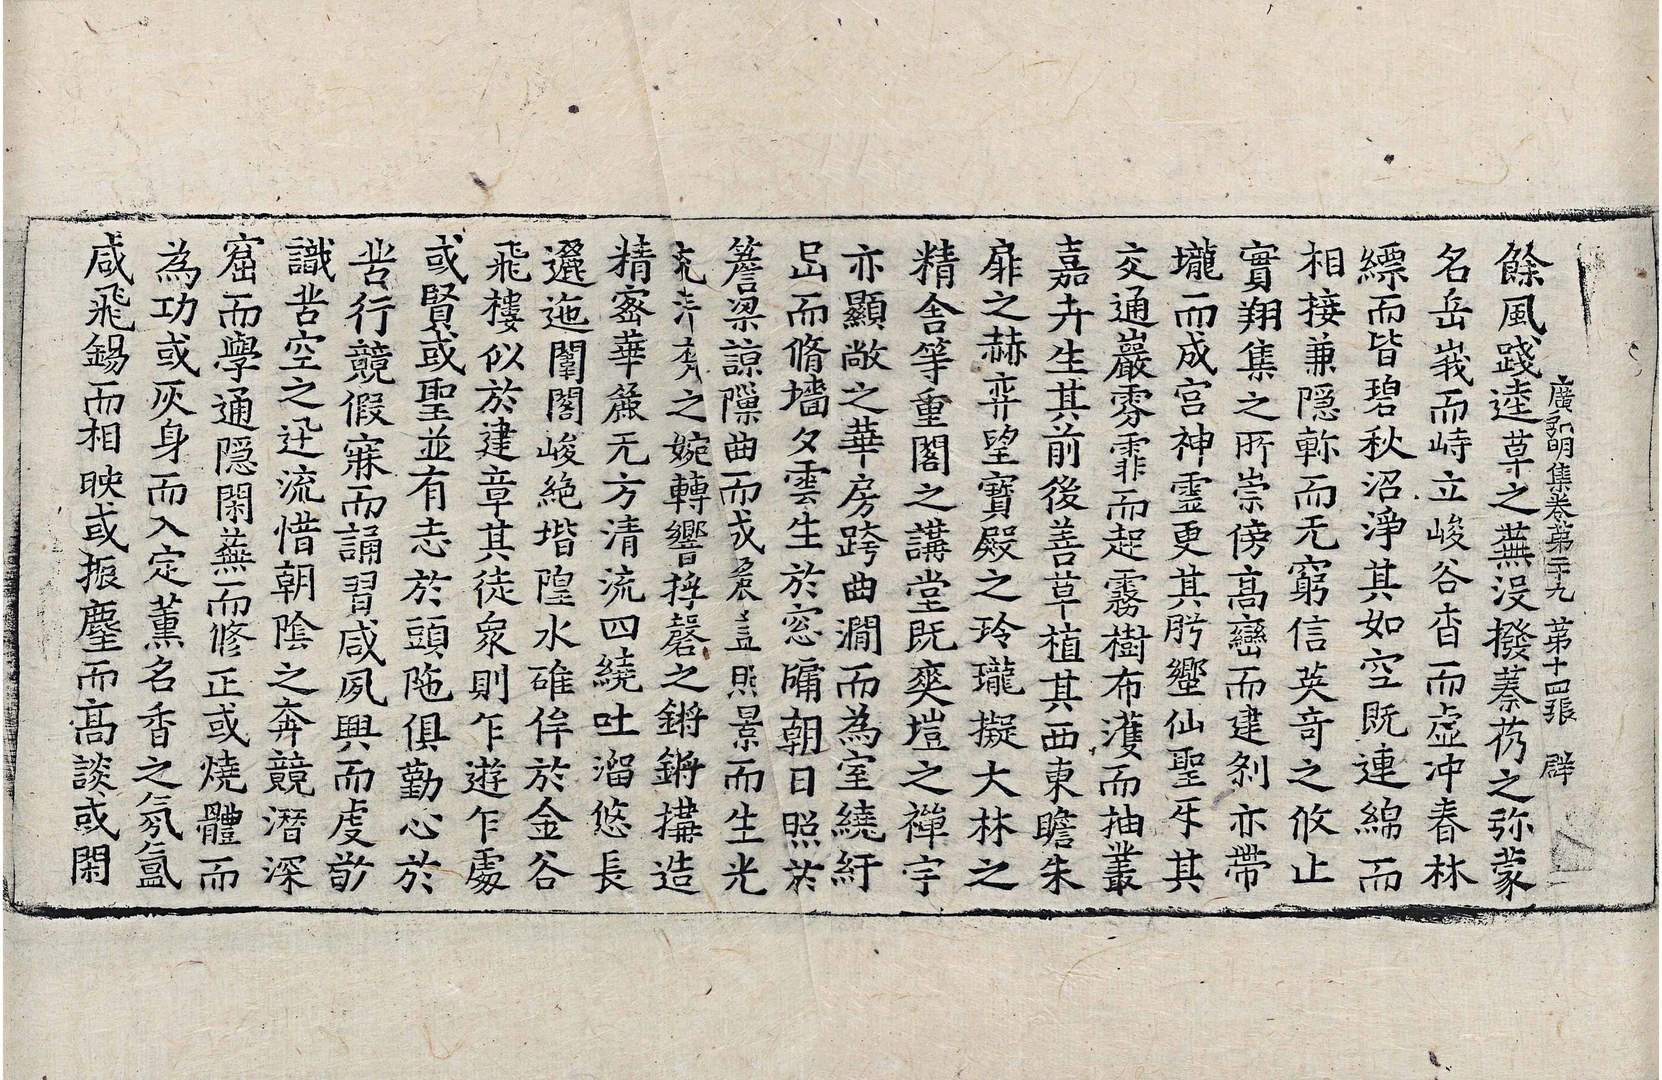 廣弘明集卷第二十九 第十四張 辟
餘風踐逵草之蕪沒撥蓁芿之弥蒙
名岳峩而峙立峻谷杳而虛冲春林
縹而皆碧秋沼淨其如空既連綿而
相接兼隐軫而无窮信英奇之攸止
實翔集之所崇傍髙巒而建剎亦帶
壠而成宮神靈更其肹蠁仙聖牙其
交通巖雰霏而起霧樹布濩而抽叢
嘉卉生其前後善草植其西東瞻朱
扉之赫弈望寶殿之玲瓏擬大林之
精舍等重閣之講堂既爽塏之禪宇
亦顯敞之華房跨曲澗而為室繞紆
岊而脩墻夕雲生於窓牖朝日照於
簷梁諒隰曲而成 照景而生光
之婉轉響捊磬之鏘鏘搆造
精宻華麄无方清流四繞吐溜悠長
邐迤闈閣峻絶堦隍水碓侔於金谷
飛樓似於建章其徒衆則乍遊乍處
或賢或聖並有志於頭陁俱勤心於
苦行競假寐而誦習咸夙興而虔㪟
識苦空之迁流惜朝陰之奔競潛深
窟而學通隐閑蕪而修正或燒體而
為功或灰身而入定薰名香之氛氳
咸飛錫而相映或振麈而髙談或閑